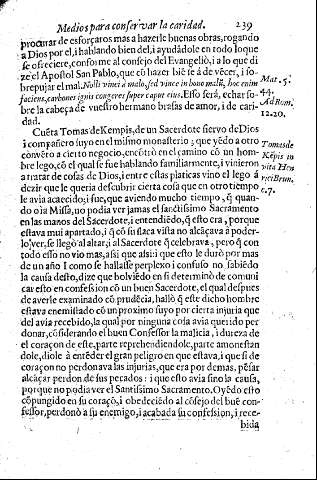 Medios para conservar la caridad. 239
procurar de esforçaros mas a hazerle buenas obras, rogando
a Dios por el, i hablando bien del, i ayudãdole en todo loque
se ofreciere, conforme al consejo del Evangelio, i a lo que di
ze el Apostol San Pablo, que cõ hazer biẽ se á de vẽcer, i so-
brepujar el mal. Noli vinci à malo, sed vince in bono malũ, hoc enim Mat. 5.
faciens, carbones ignis congeres super caput eius, Esso será, echar so- 44.
bre la cabeça de vuestro hermano brasas de amor, i de cari- Ad Rom.
dad. 12.20.
Cuẽta Tomas de Kempis, de un Sacerdote siervo de Dios
i compañero suyo en el mismo monasterio; que yẽdo a otro Tomas de
convẽto a cierto negocio, encõtrò en el camino cõ un hom- Kẽpis in
bre lego, cõ el qual se fue hablando familiarmente, i vinieron vita Hẽn
a tratar de cosas de Dios, i entre estas platicas vino el lego á rici Brum.
dezir que le queria descubrir cierta cosa que en otro tiempo c.7.
le avia acaecido; i fue, que aviendo mucho tiempo, q̃ quan-
do oìa Missa, no podia ver jamas el santissimo Sacramento
en las manos del Sacerdote, i entendiẽdo, q̃ esto era, porque
estava mui apartado, i q̃ cõ su flaca vista no alcãçava à poder-
lo ver, se llegò al altar, i al Sacerdote q̃ celebrava, pero q̃ con
todo esso no vio mas, assi que alsi: i que esto le durò por mas
de un año I como se hallasse perplexo i confuso no sabiẽdo
la causa desto, dize que bolviẽdo en si determinò de comuni
car esto en confessiõ cõ un buen Sacerdote, el qual despues
de averle examinado cõ prudẽcia, hallò q̃ este dicho hombre
estava enemistado cõ un proximo suyo por cierta injuria que
del avia recebido, la qual por ninguna cosa avia querido per
donar, cõsiderando el buen Confessor la malicia, i dureza de
el coraçon de este, parte reprehendiendole, parte amonestan
dole, diole à entẽder el gran peligro en que estava, i que si de
coraçon no perdonava las injurias, que era por demas, pẽsar
alcãçar perdon de sus pecados: i que esto avia sino la causa,
porque no podia ver el Santissimo Sacramento. Oyẽdo esto
cõpungido en su coraçõ, i obedeciẽdo al cõsejo del buẽ con-
fessor, perdonò a su enemigo, i acabada su confession, i rece-
bida